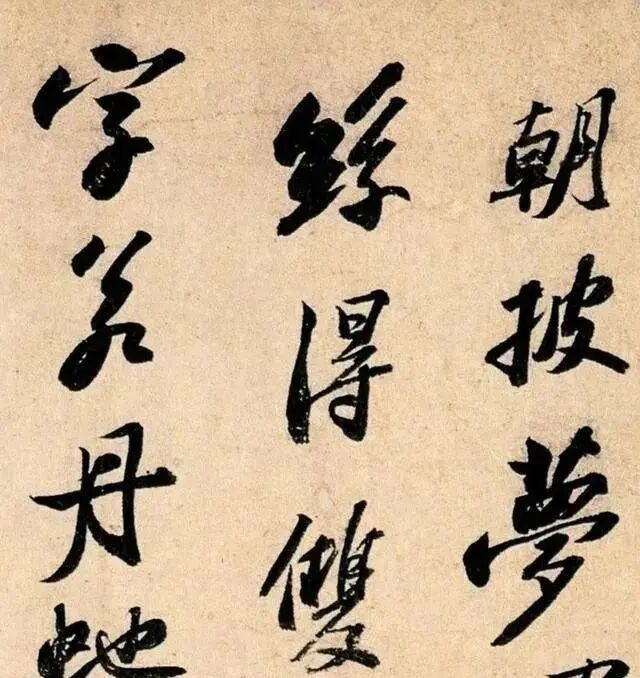 朝披夢
絲得雙
字若丹虵